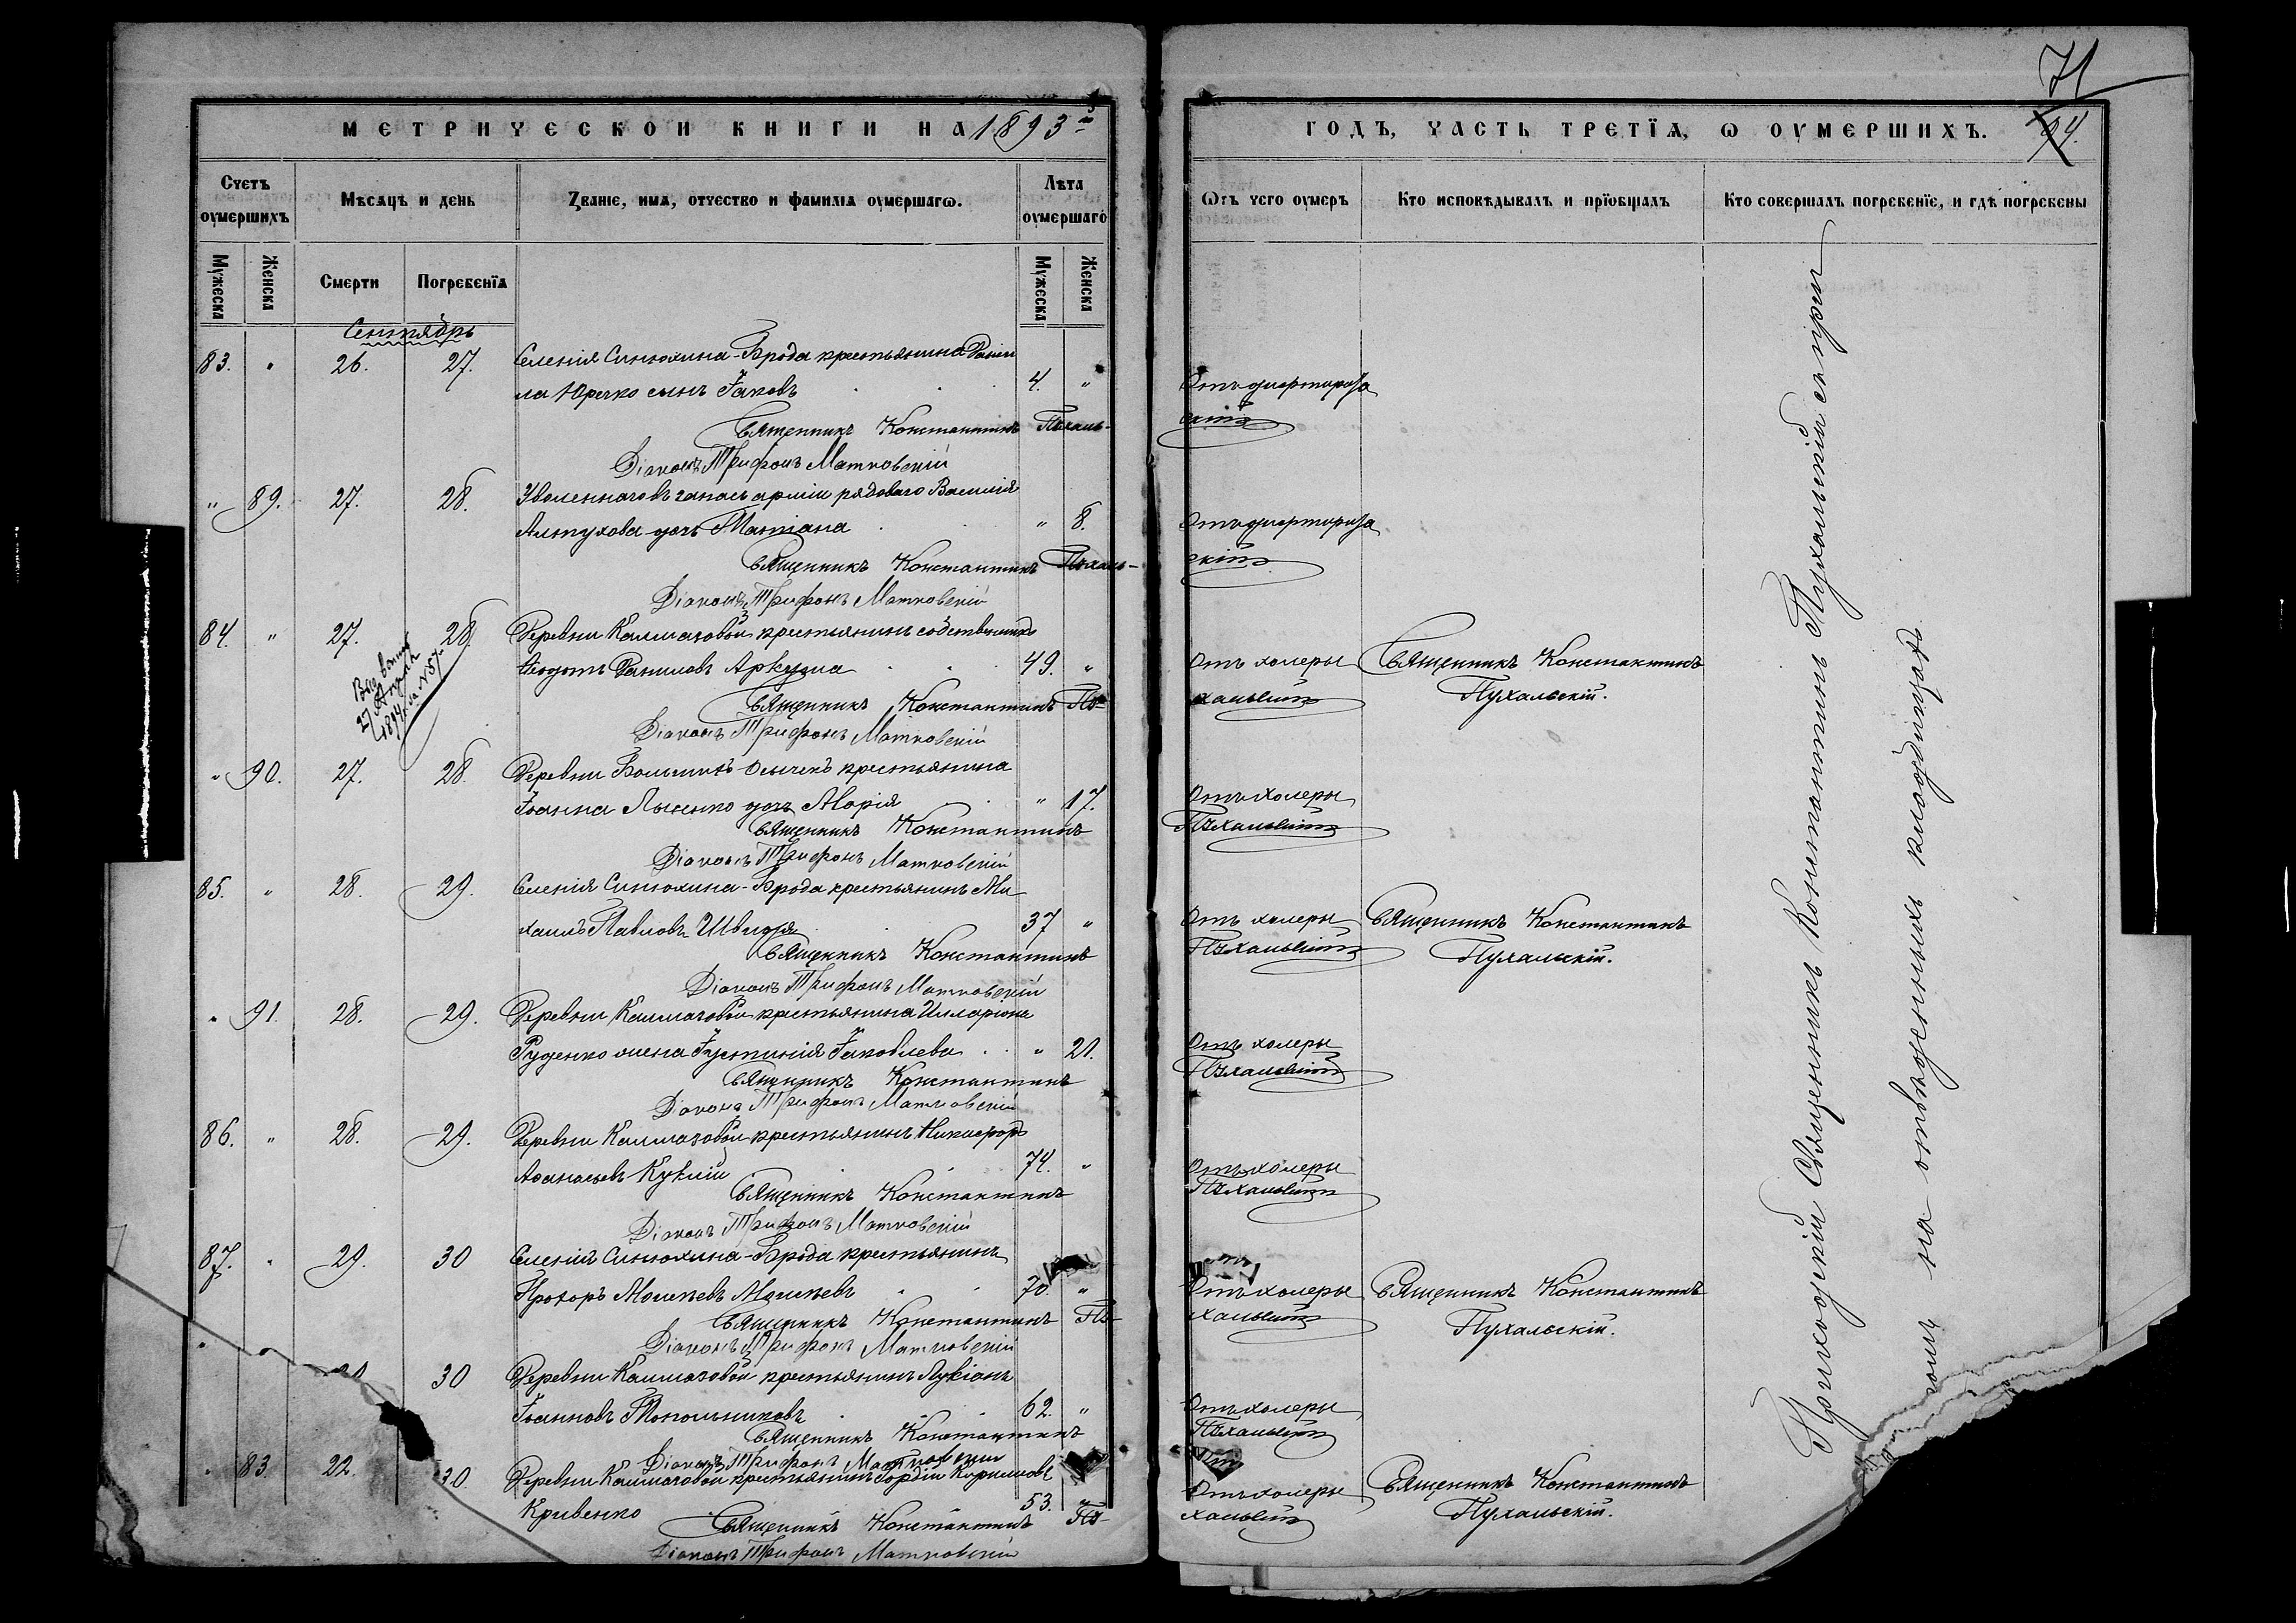 МЕТРИЧЕСКОЙ КНИГИ НА 1893й
Счетъ оумершихъ
Мѣсяцъ и день
Званіе, имя, отчество и фамилія оумершагѡ.
Лѣта оумершаго
Мужеска
Женска
Смерти
Погребенія
Мужеска
Женска
Сентябрь
83. " 26. 27. Селенія Синюхина-Брода крестьянина Дании
ла Юречко сынъ Іаковъ 4. "
Священникъ Константинъ Пухаль-
Діаконъ Трифонъ Матковскій
" 89. 27. 28. Уволеннаго въ запасъ арміи рядоваго Василія
Алтухова дочь Татіана " 8.
Священникъ Константинъ Пухаль-
Діаконъ Трифонъ Матковскій
84. " 27. 28. Деревни Калмазовой крестьянинъ собственникъ
Ѳеодотъ Даниловъ Аркуша 49. "
27 1894 г. за №57.
Священникъ Константинъ Пу-
Діаконъ Трифонъ Матковскій
" 90. 27. 28. Деревни крестьянина
Іоанна Лысенко дочь Марія " 17.
Священникъ Константинъ
Діаконъ Трифонъ Матковскій
85. " 28. 29. Селенія Синюхина-Брода крестьянинъ Ми
хаилъ Павловъ 37 "
Священникъ Константинъ
Діаконъ Трифонъ Матковскій
" 91. 28. 29. Деревни Калмазовой крестьянина Илларіона
Руденко жена Іустинія Іаковлева " 21.
Священникъ Константинъ
Діаконъ Трифонъ Матковскій
86. " 28. 29. Деревни Калмазовой крестьянинъ Никифоръ
Аѳанасьевъ 74. "
Священникъ Константинъ
Діаконъ Трифонъ Матковскій
87. " 29. 30 Селенія Синюхина-Брода крестьянинъ
Прохоръ Моисеевъ Моисеевъ 70. "
Священникъ Константинъ Пу-
Діаконъ Трифонъ Матковскій
30 Деревни Калмазовой крестьянинъ Лукіанъ
Іоанновъ Топольниковъ 62. "
Священникъ Константинъ
Діаконъ Трифонъ Матковскій
" 83. 22. 30. Деревни Калмазовой крестьянинъ Гордій Кирилловъ
Кривенко 53.
Священникъ Константинъ Пу-
Діаконъ Трифонъ Матковскій
71
ГОДЪ, ЧАСТЬ ТРЕТІЯ, Ѡ ОУМЕРШИХЪ. 94.
Ѿъ чего оумеръ
Кто исповѣдывалъ и пріобщалъ
Кто совершалъ погребеніе, и гдѣ погребены
Отъ дифтерита
скій
Отъ дифтерита
скій
Отъ холеры Священникъ Константинъ
хальскій Пухальскій.
Отъ холеры
Пухальскій
Отъ холеры Священникъ Константинъ
Пухальскій Пухальскій.
Отъ холеры
Пухальскій
Отъ холеры
Пухальскій
Отъ холеры Священникъ Константинъ
хальскій Пухальскій.
Отъ холеры
Пухальскій
Отъ холеры Священникъ Константинъ
хальскій Пухальскій.
Приходскій Священникъ Константинъ Пухальскій съ прич
томъ на отведенныхъ кладбищахъ